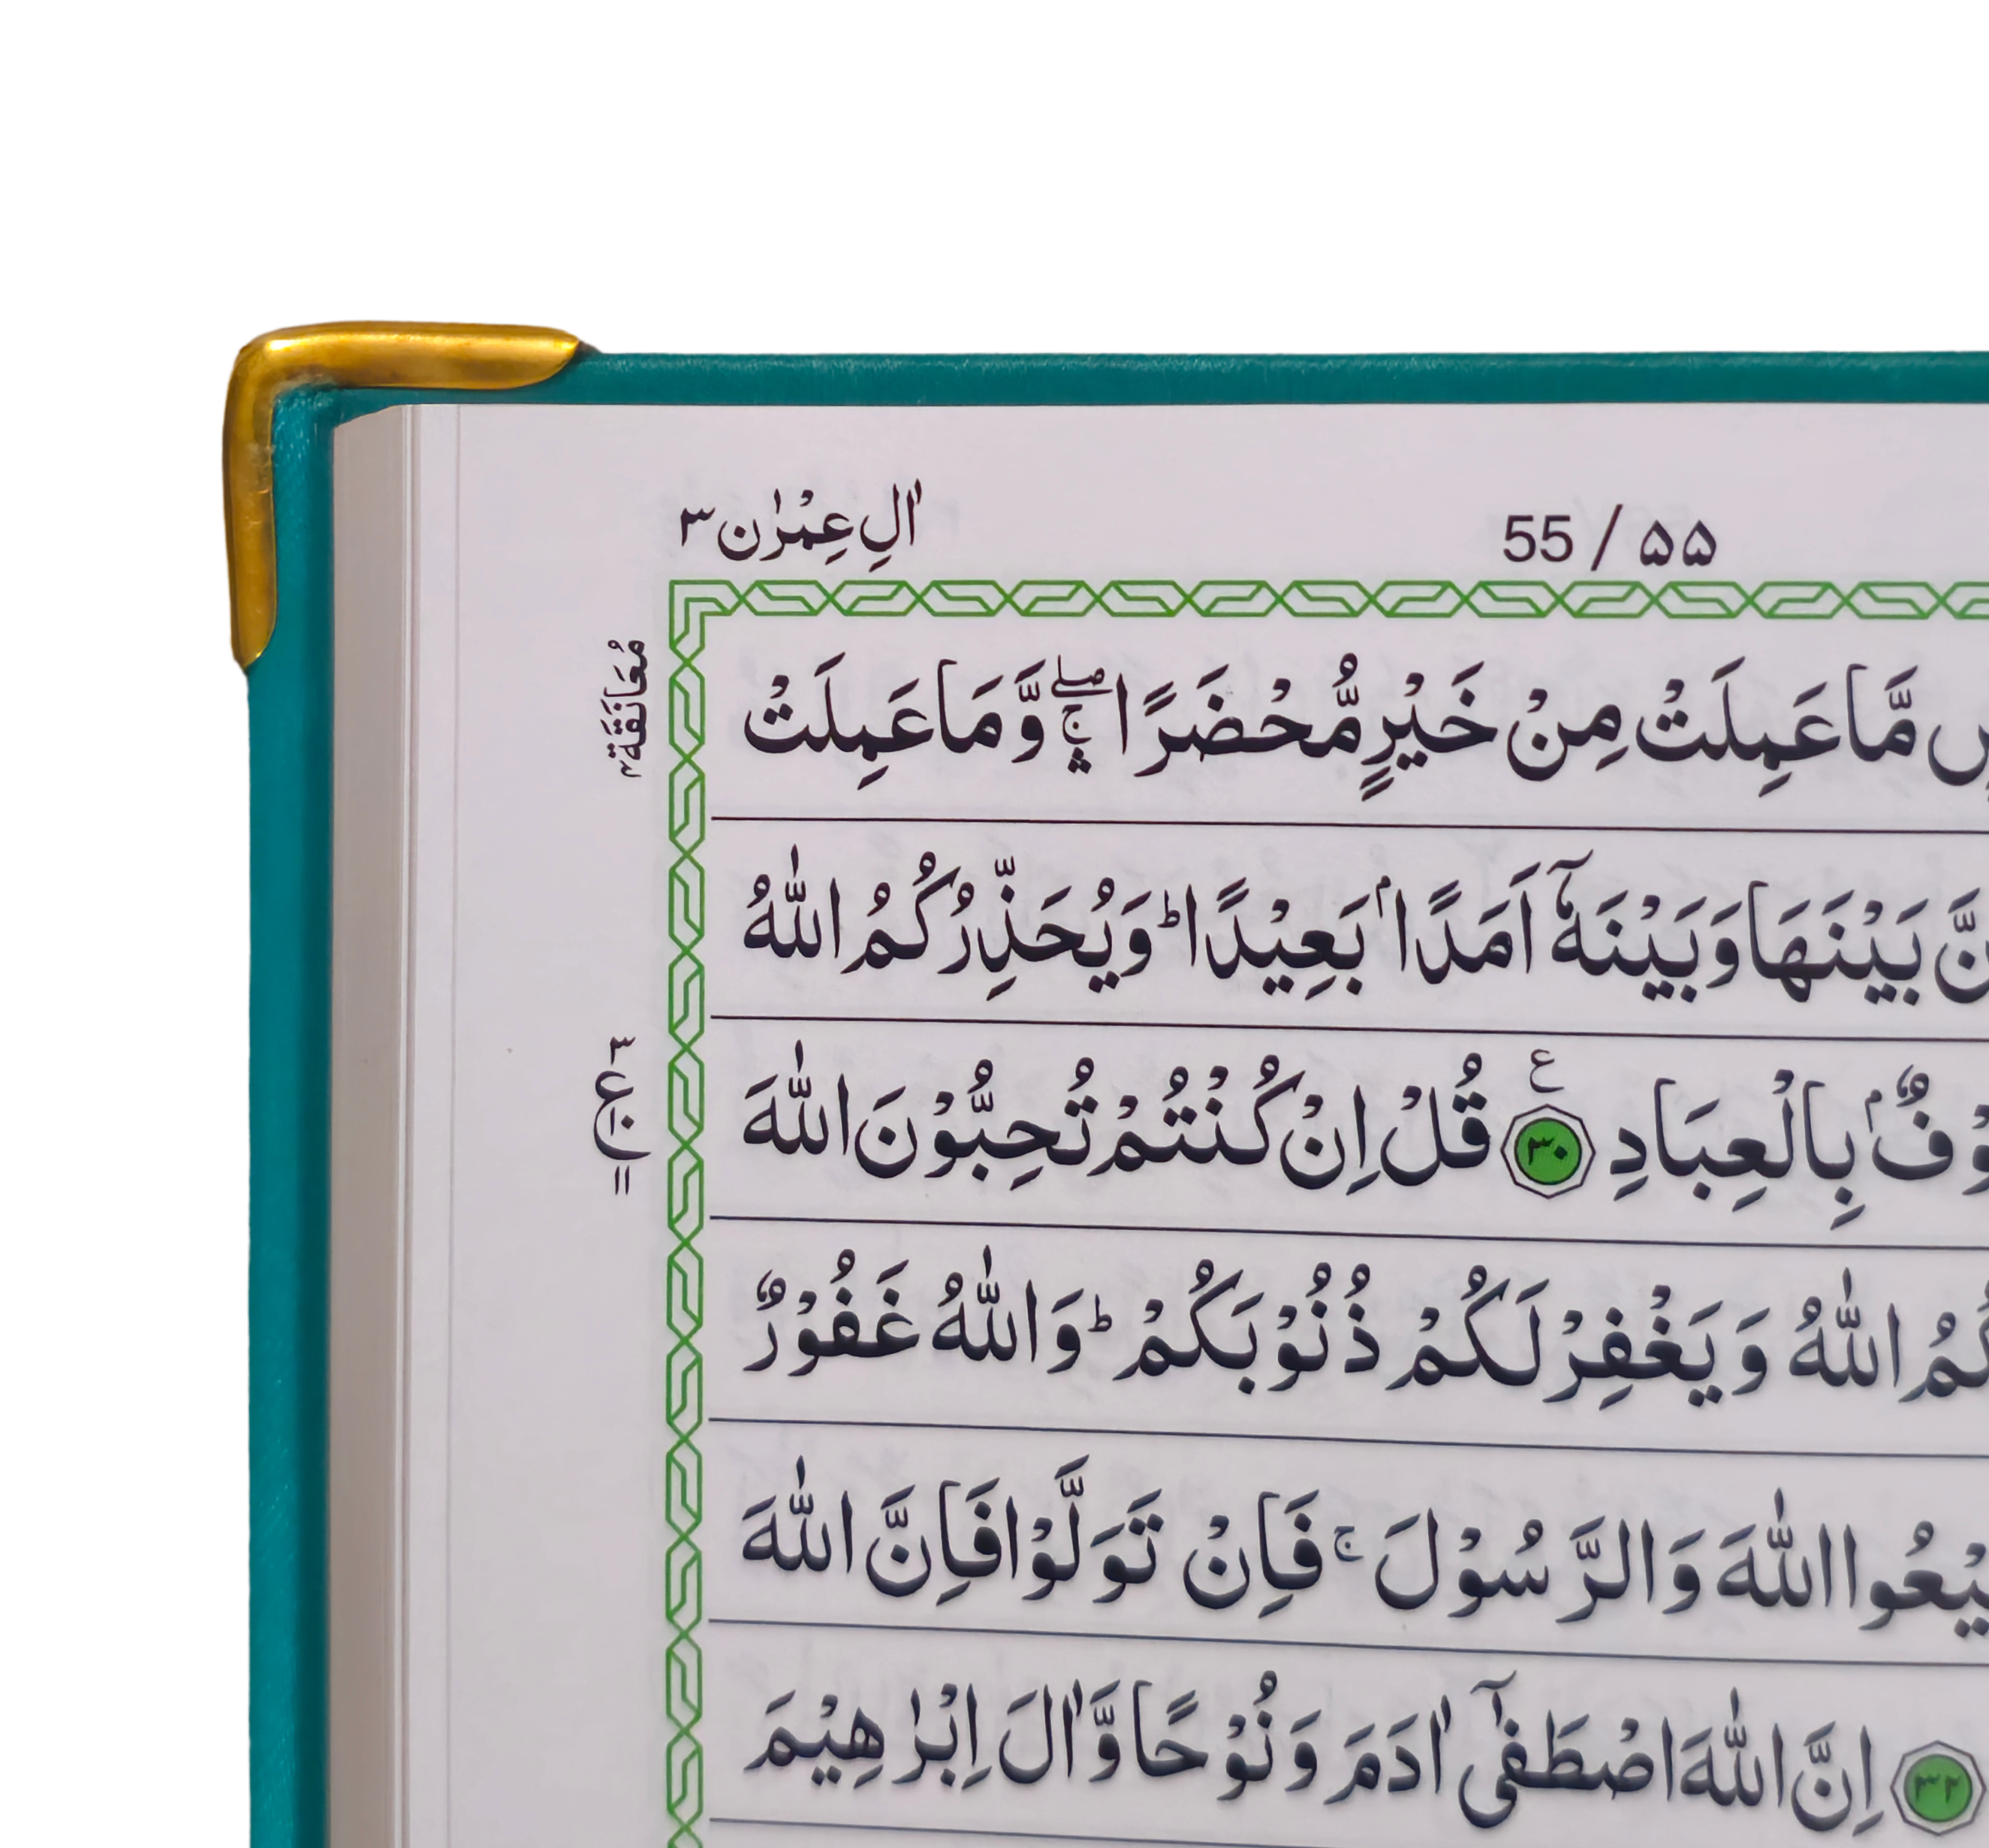 55 / ۵۵ اٰلِ عِمْرٰن ۳
مَّا عَمِلَتْ مِنْ خَيْرٍ مُّحْضَرًا ۛۖۚ وَّمَا عَمِلَتْ
مُعَانَقَة
بَيْنَهَا وَبَيْنَهٗۤ اَمَدًاۢ بَعِيْدًا ؕ وَيُحَذِّرُكُمُ اللّٰهُ
بِالْعِبَادِ ۳۰ ع قُلْ اِنْ كُنْتُمْ تُحِبُّوْنَ اللّٰهَ
۳ ع
اللّٰهُ وَيَغْفِرْ لَكُمْ ذُنُوْبَكُمْ ؕ وَاللّٰهُ غَفُوْرٌ
اللّٰهَ وَالرَّسُوْلَ ۚ فَاِنْ تَوَلَّوْا فَاِنَّ اللّٰهَ
۳۲ اِنَّ اللّٰهَ اصْطَفٰۤى اٰدَمَ وَنُوْحًا وَّاٰلَ اِبْرٰهِيْمَ